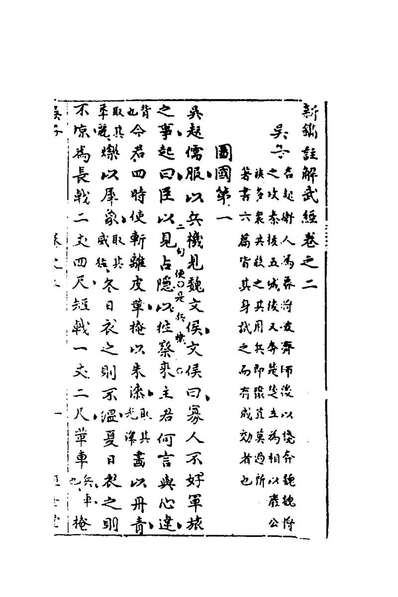 新鐫註解武經卷之二
吳子
名起衛人為魯將攻齊師後以讒奔魏魏將
之攻秦拔五城後又奔楚楚立為相以廢公
族多眾共殺之其用兵即
著書六篇皆其身試之而有成効者也
圖國第一
吳起儒服以兵機見魏文侯文侯曰寡人不好軍旅
之事起曰臣以見占隱以往察來主君何言與心違
今君四時使斬離皮革掩以朱漆畫以丹青
爍以犀象冬日衣之則不溫夏日衣之則
不涼為長戟二丈四尺短戟一丈二尺革車兵車也掩